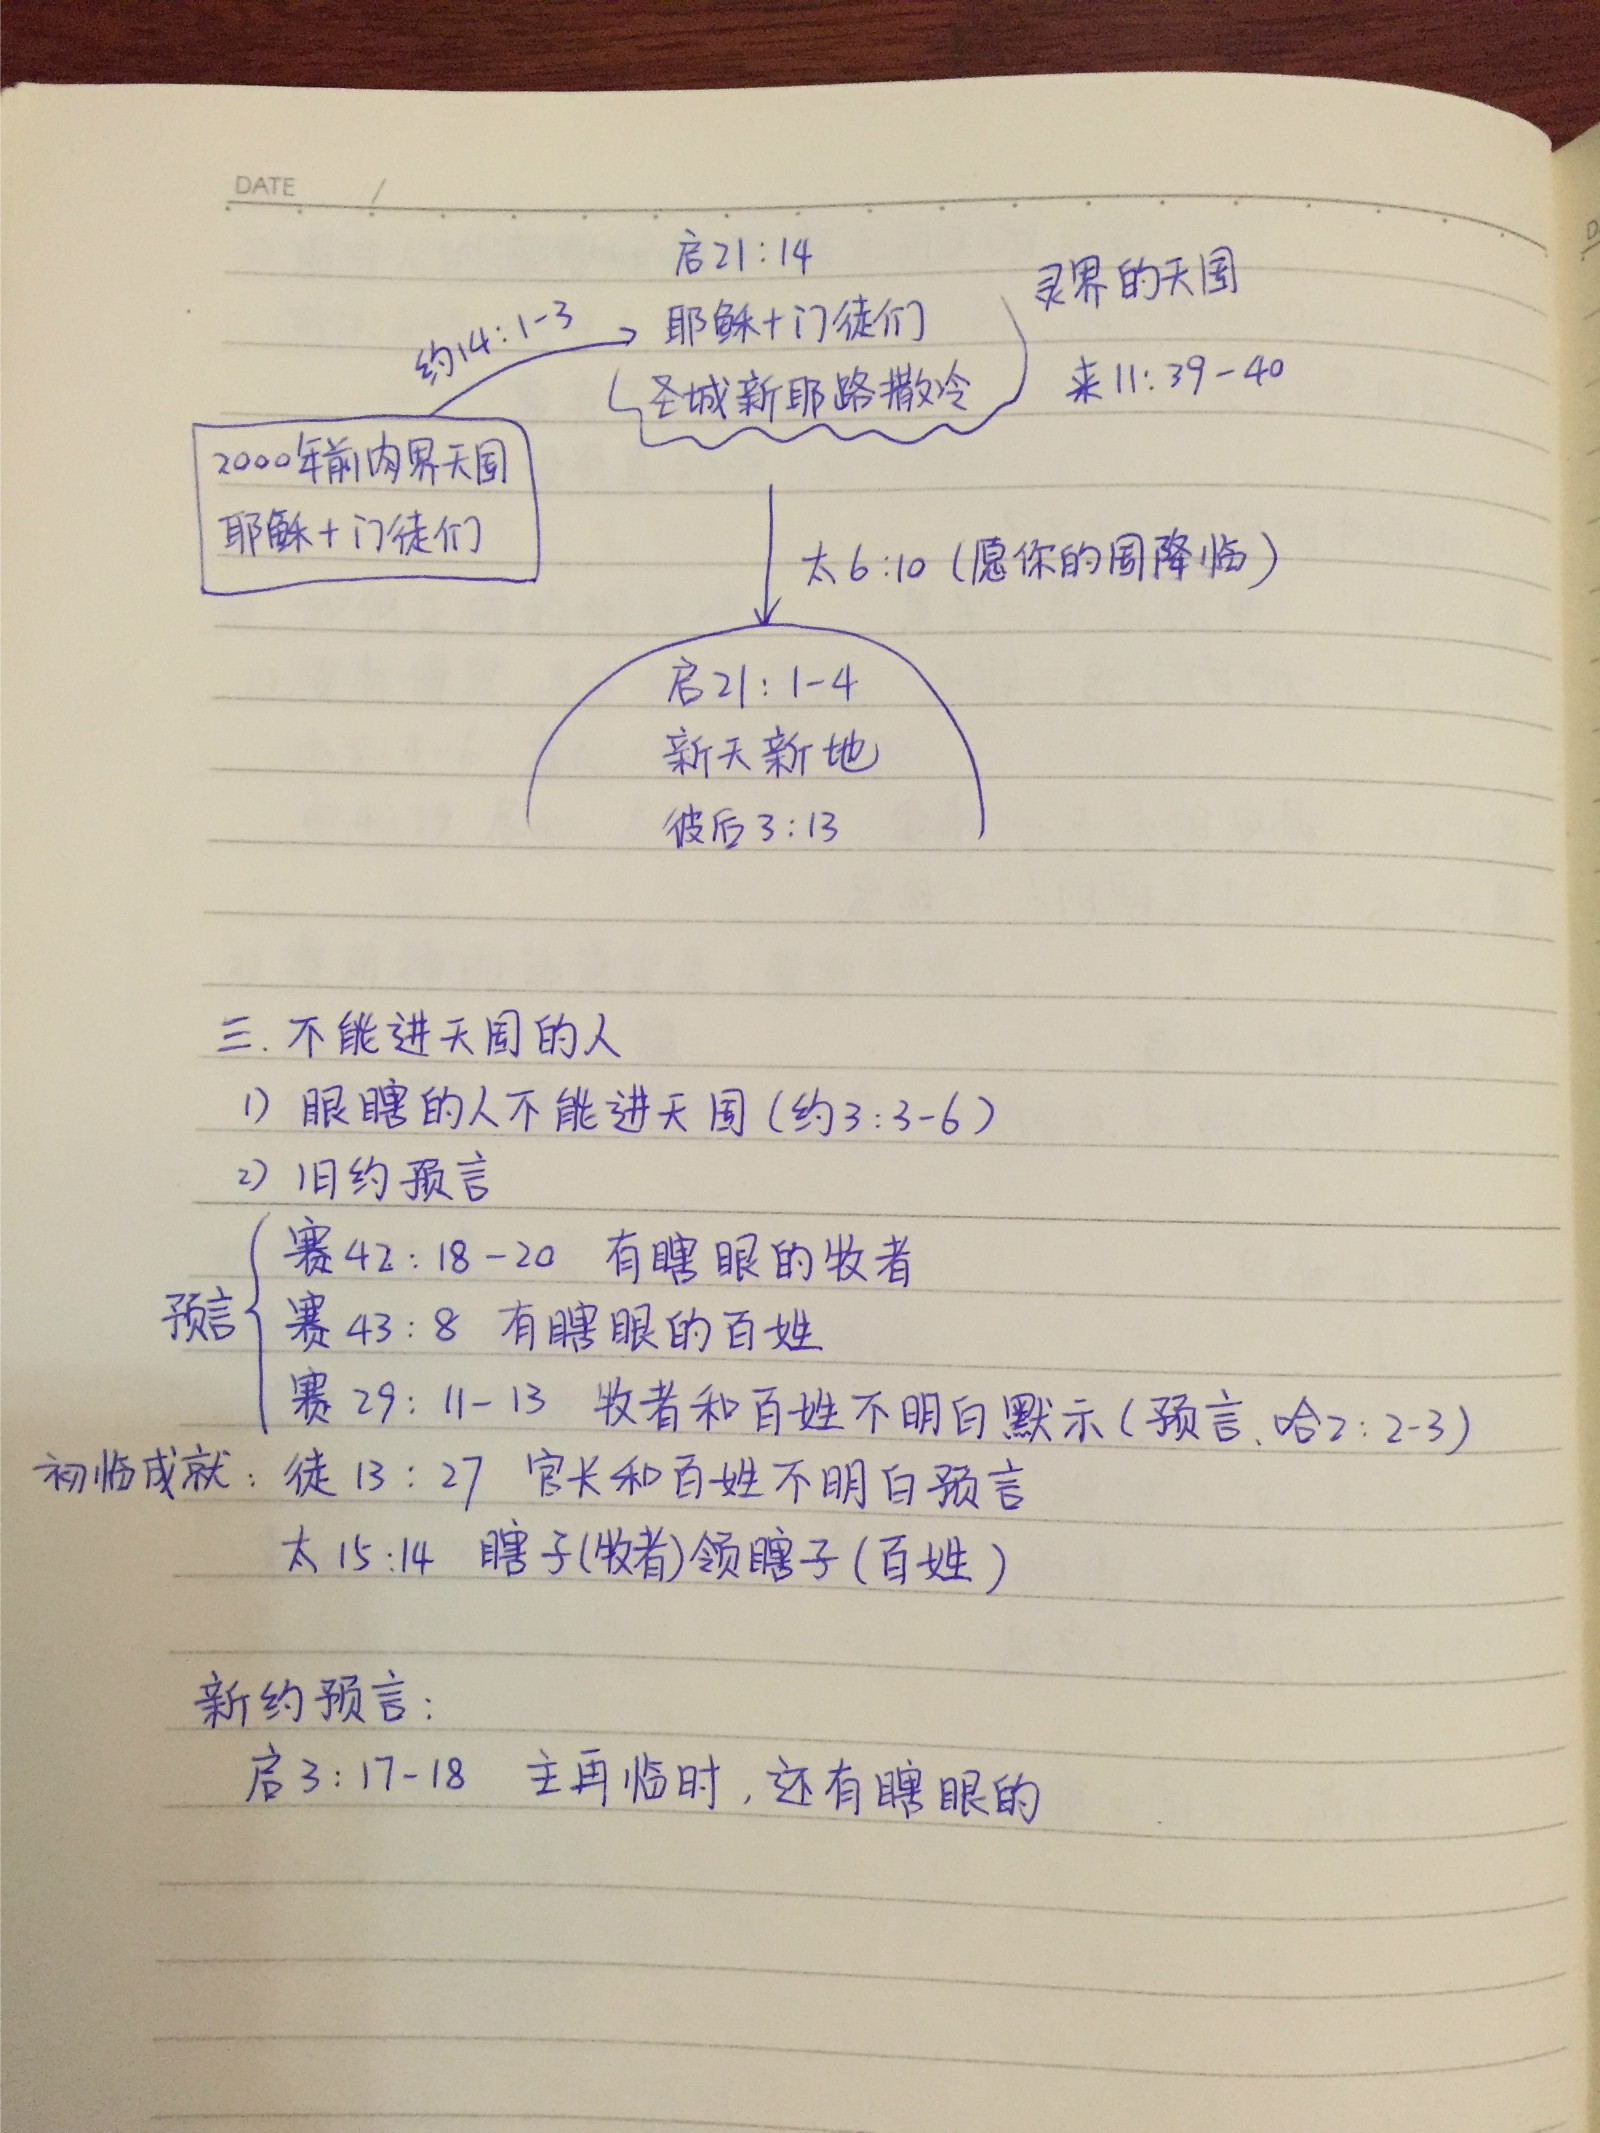 DATE /
启21:14
灵界的天国
约14:1-3
耶稣+门徒们
圣城新耶路撒冷
来11:39-40
2000年前肉界天国
耶稣+门徒们
太6:10(愿你的国降临)
启21:1-4
新天新地
彼后3:13
三.不能进天国的人
1) 眼瞎的人不能进天国(约3:3-6)
2) 旧约预言
赛42:18-20 有瞎眼的牧者
预言 赛43:8 有瞎眼的百姓
赛29:11-13 牧者和百姓不明白默示(预言、哈2:2-3)
初临成就:徒13:27 官长和百姓不明白预言
太15:14 瞎子(牧者)领瞎子(百姓)
新约预言:
启3:17-18 主再临时,还有瞎眼的